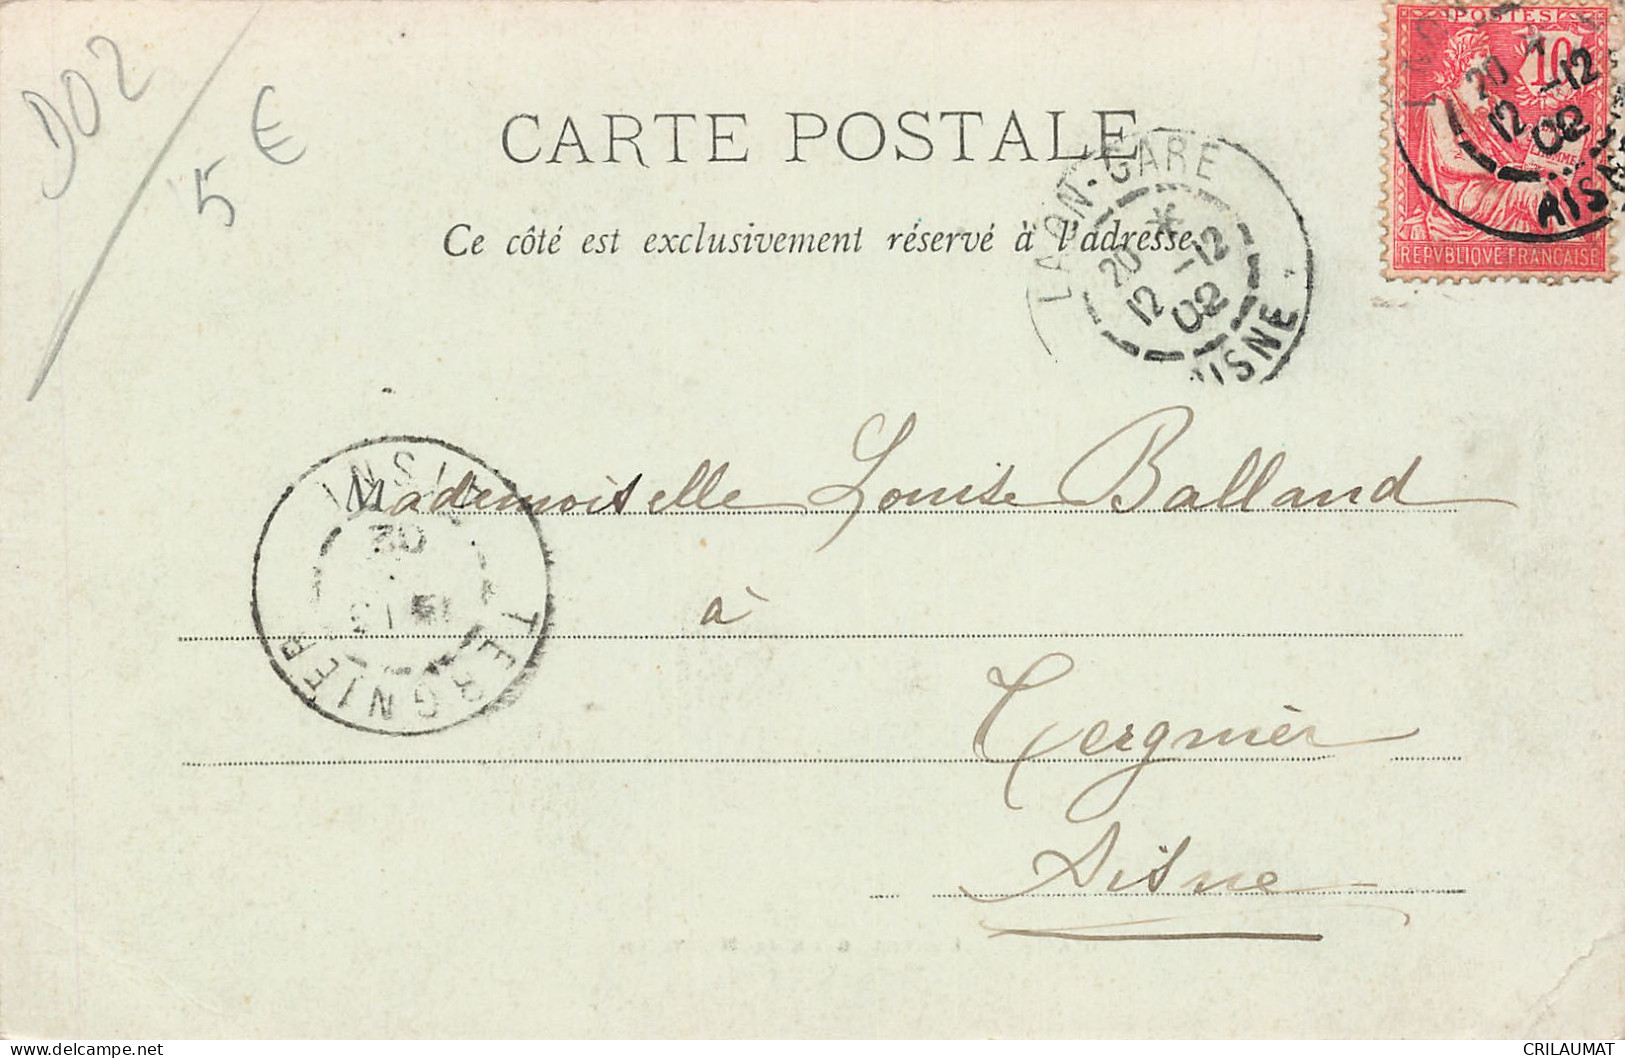 D02
5 €
CARTE POSTALE
Ce côté est exclusivement réservé à l'adresse
LAON-GARE
20
12
-12
02
AISNE
POSTES
10
20
12
-12
02
AISNE
REPVBLIQVE FRANÇAISE
TERGNIER
Mademoiselle Louise Balland
à
Tergnier
Aisne
CRILAUMAT